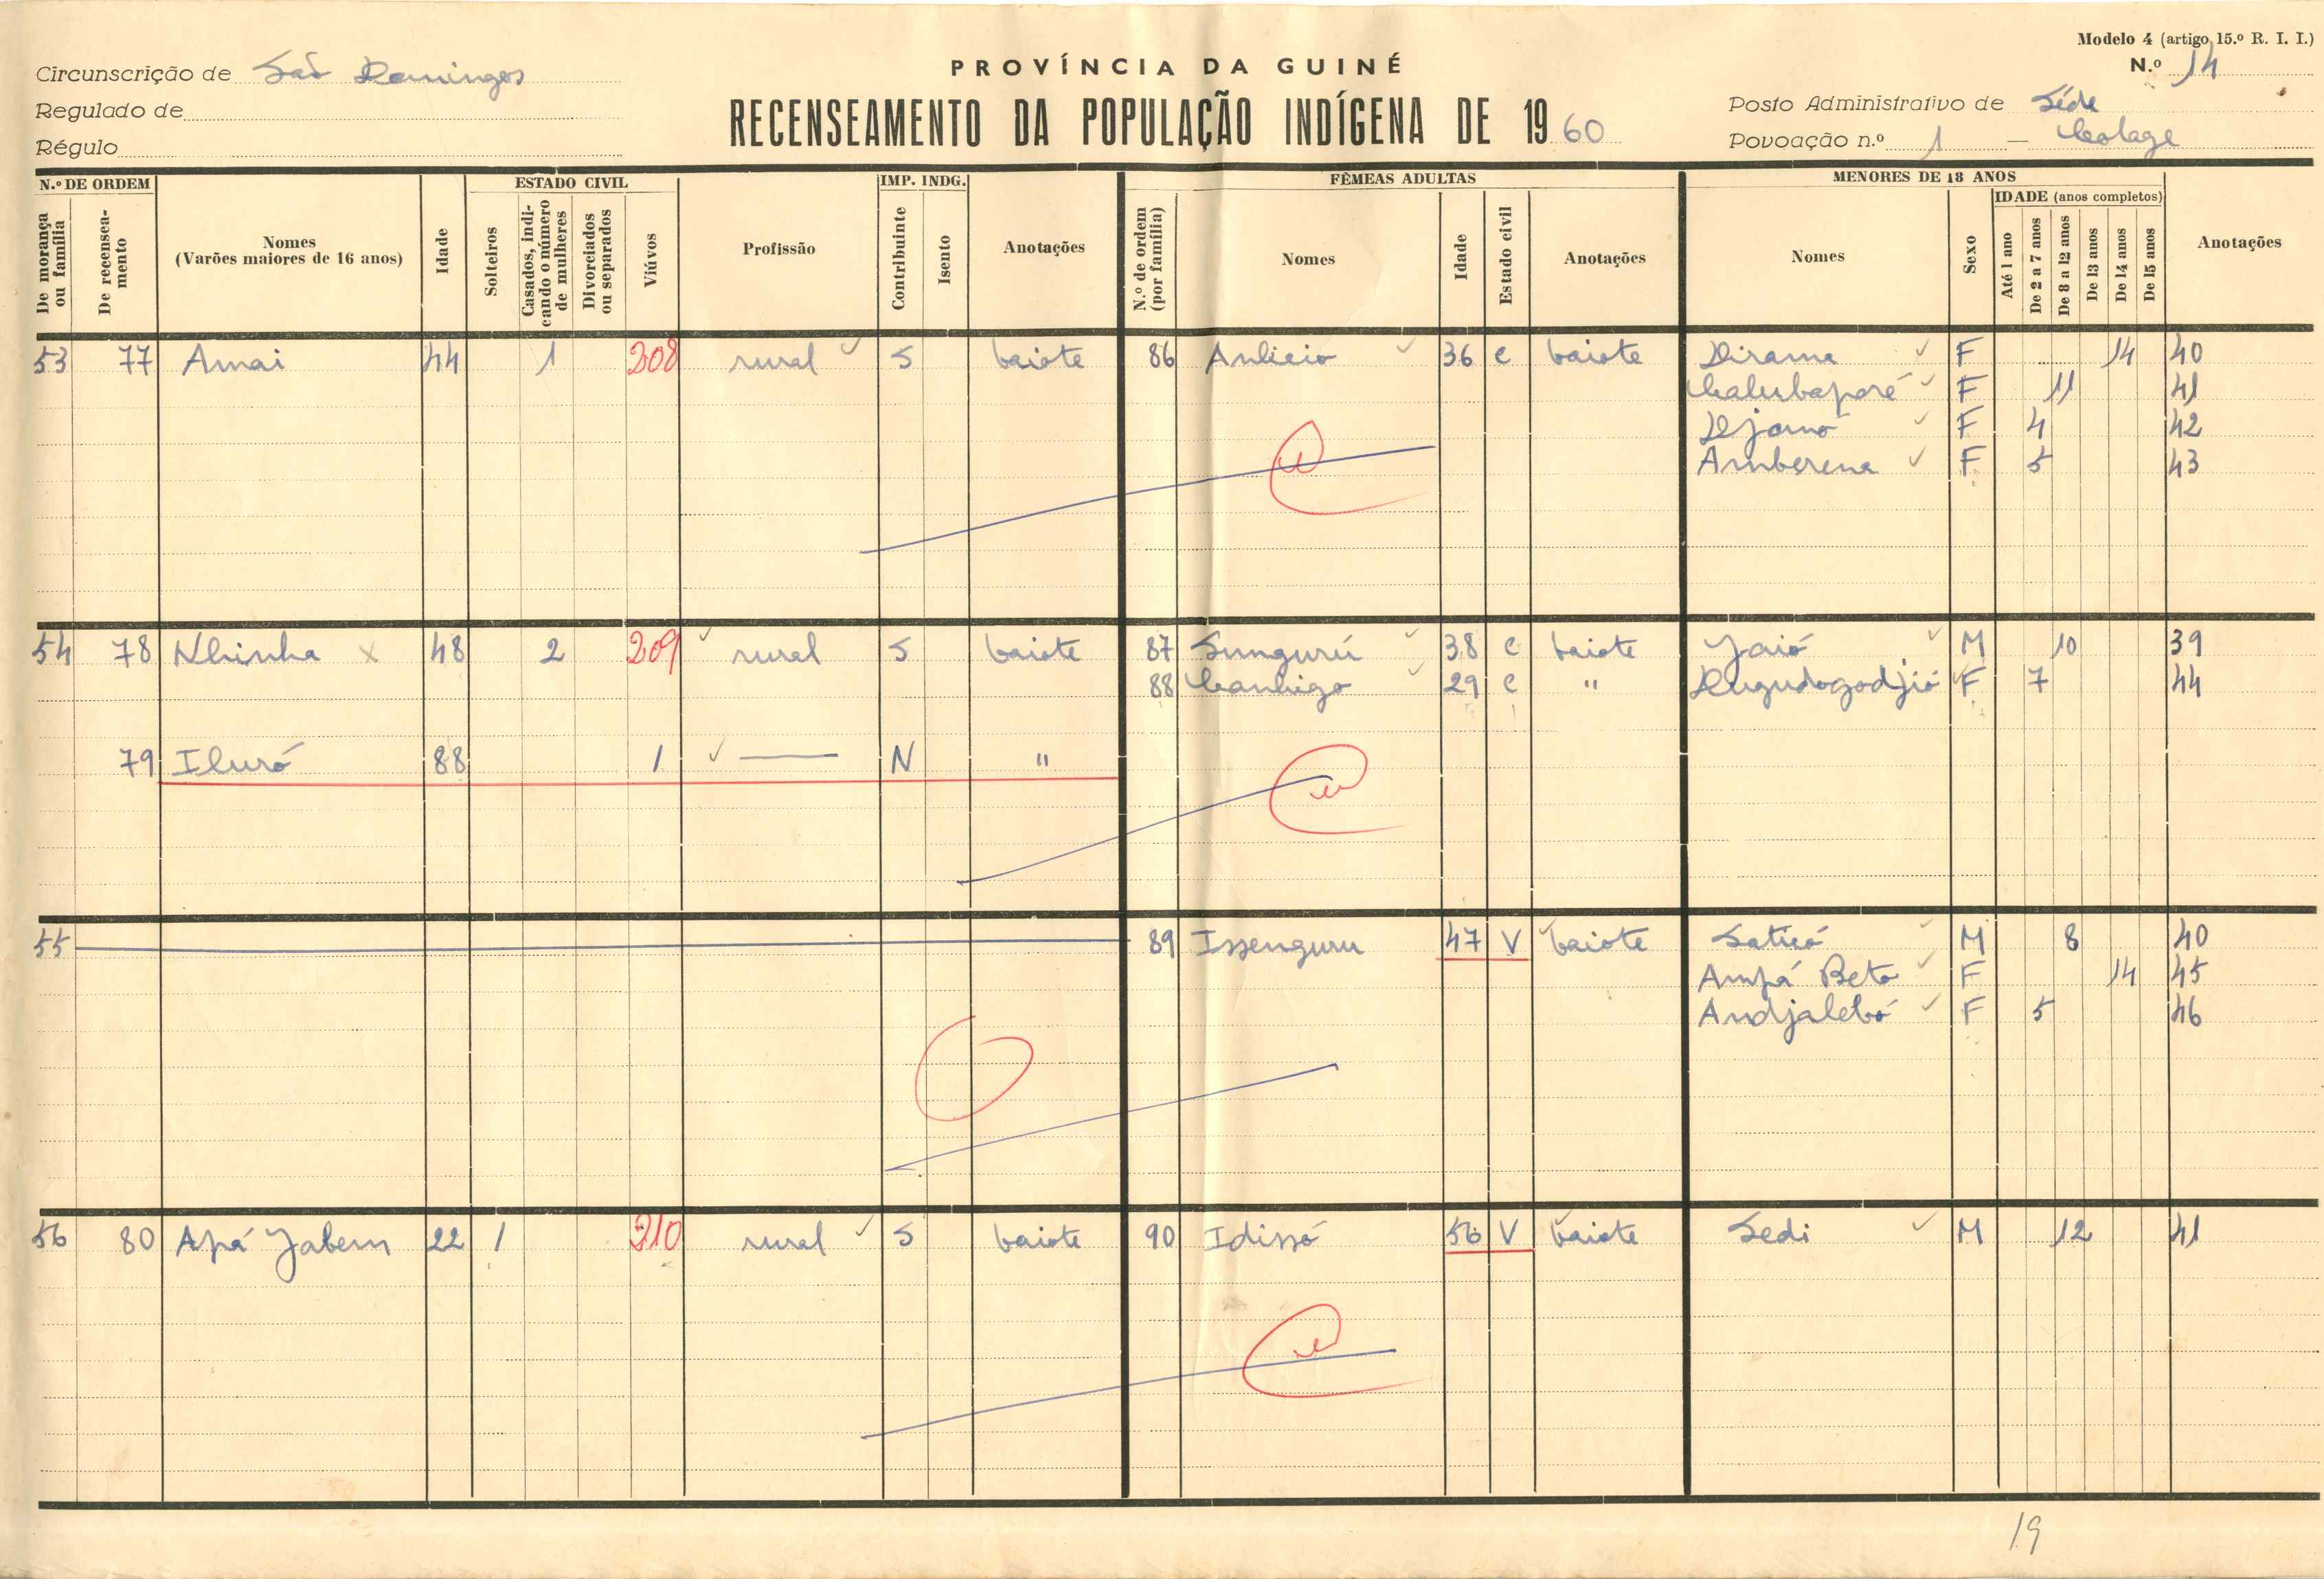 Modelo 4 (artigo 15.º R. I. I.)
N.º 14
PROVÍNCIA DA GUINÉ
RECENSEAMENTO DA POPULAÇÃO INDÍGENA DE 1960
Circunscrição de São Domingos
Regulado de
Régulo
Posto Administrativo de Séde
Povoação n.º 1 — Colage
N.º DE ORDEM
De morança ou família
De recensea-mento
Nomes
(Varões maiores de 16 anos)
Idade
ESTADO CIVIL
Solteiros
Casados, indi-cando o número de mulheres
Divorciados ou separados
Viúvos
Profissão
IMP. INDG.
Contribuinte
Isento
Anotações
FÊMEAS ADULTAS
N.º de ordem (por família)
Nomes
Idade
Estado civil
Anotações
MENORES DE 18 ANOS
Nomes
Sexo
IDADE (anos completos)
Até 1 ano
De 2 a 7 anos
De 8 a 12 anos
De 13 anos
De 14 anos
De 15 anos
Anotações
53 77 Amai 44 1 208 rural S baiote 86 Anlieio 36 C baiote Dirama F 14 40
Calubaporé F 11 41
Djamo F 4 42
Amberena F 5 43
54 78 Nhinha x 48 2 209 rural S baiote 87 Sungurú 38 C baiote Jaió M 10 39
88 Canhigo 29 C " Dugudogodjió F 7 44
79 Iluró 88 1 — N "
55 89 Issenguru 47 V baiote Satió M 8 40
Ampá Beto F 14 45
Andjalebó F 5 46
56 80 Apá Jabem 22 1 210 rural S baiote 90 Idissó 56 V baiote Sedi M 12 41
19